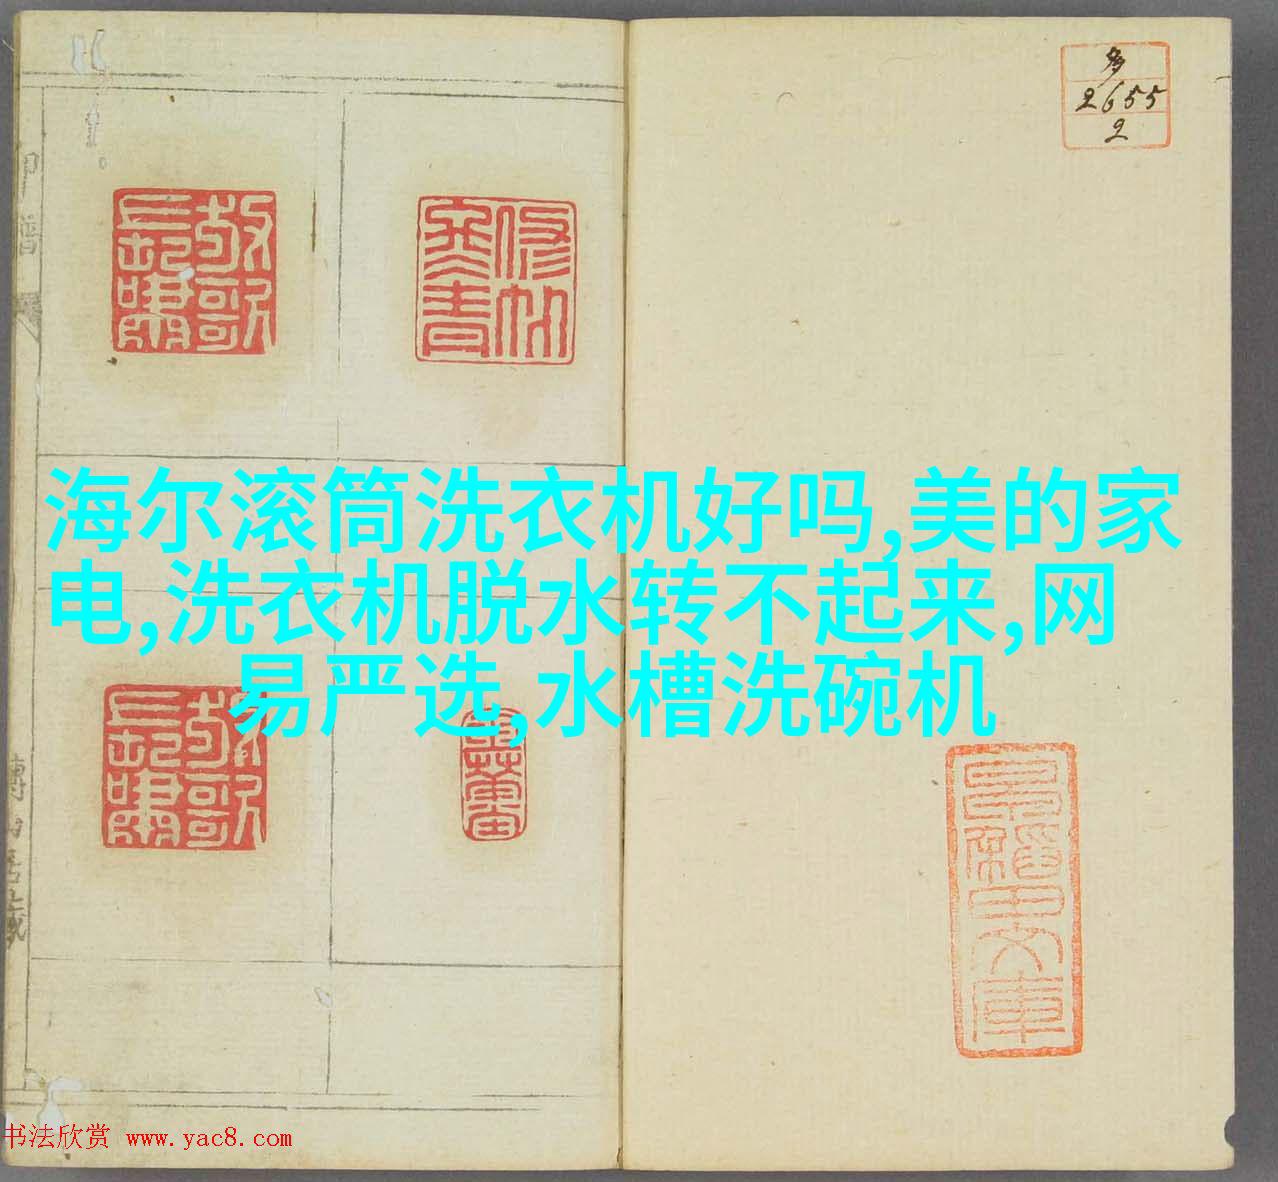 多
2655
2
敬歌
長嘯
修竹
海尔滚筒洗衣机好吗,美的家
电,洗衣机脱水转不起来,网
易严选,水槽洗碗机
敬歌
長嘯
文庫
书法欣赏 www.yac8.com